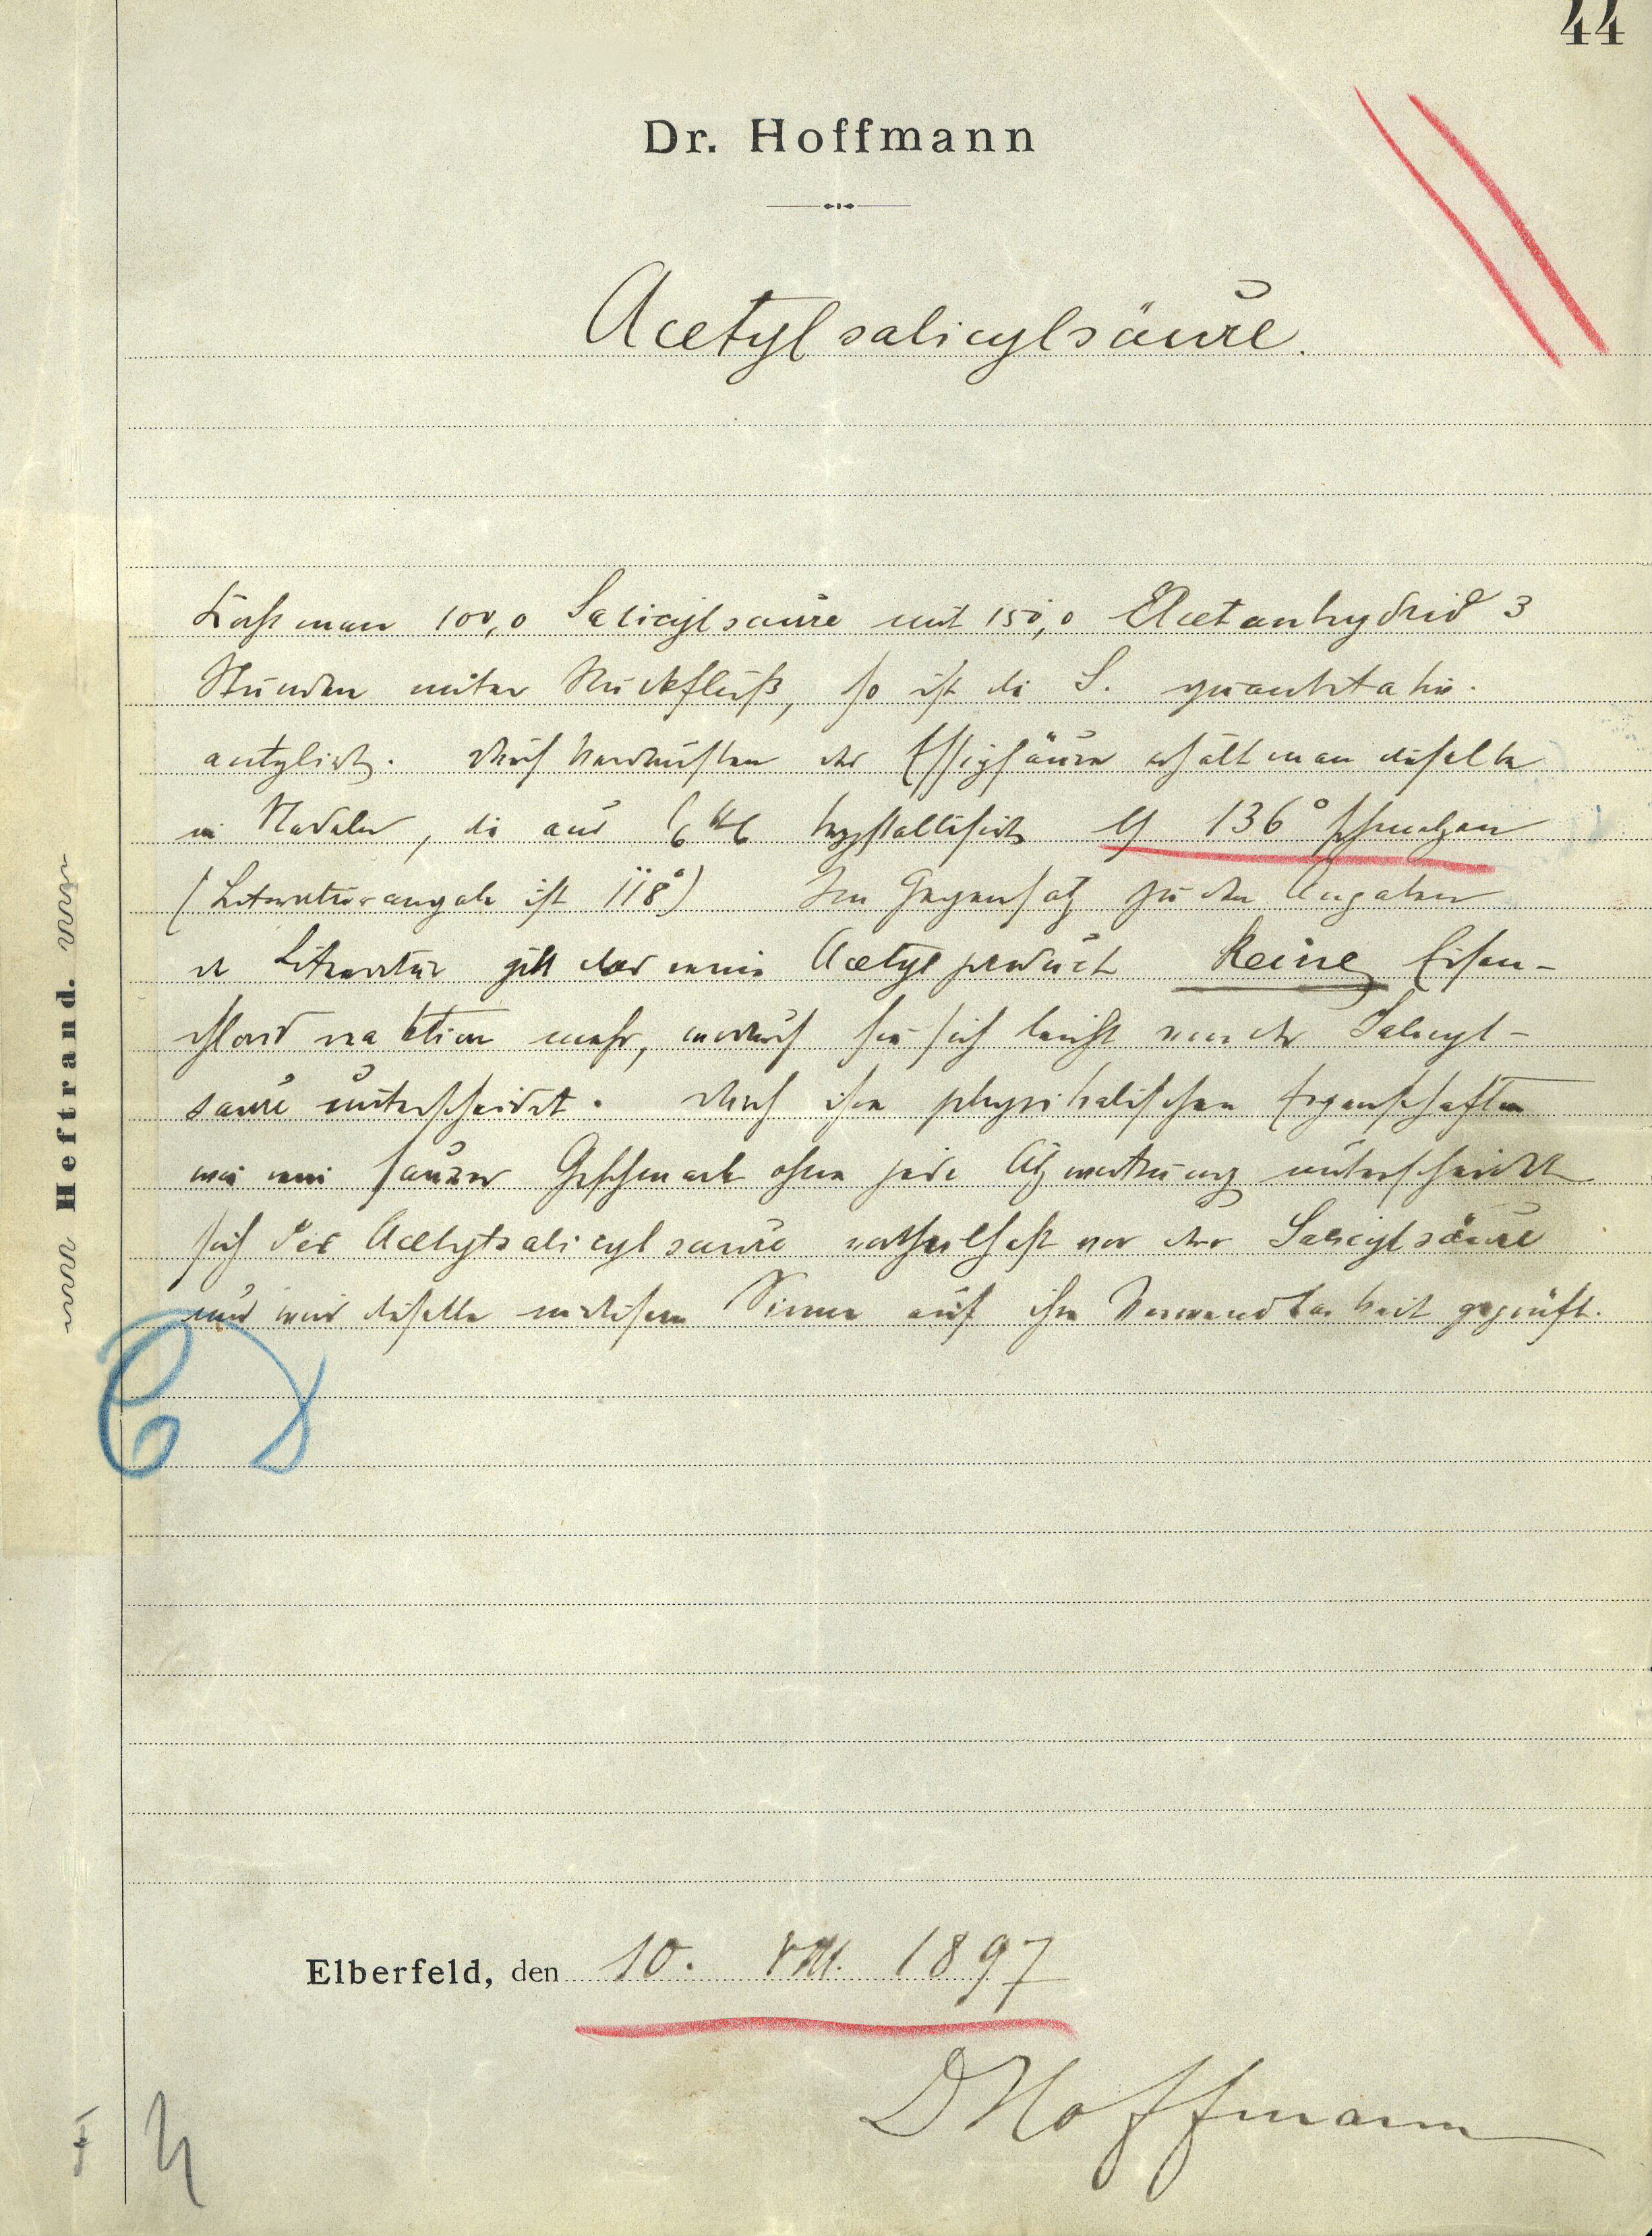 44
Dr. Hoffmann
Acetylsalicylsäure.
Kocht man 100,0 Salicylsäure mit 150,0 Acetanhydrid 3
Stunden unter Rückfluß, so ist die S. quantitativ
acetyliert. Durch Abdestillieren der Essigsäure erhält man dieselbe
in Nadeln, die aus C6H6 krystallisiert 136° schmelzen
(Literaturangabe ist 118°) Im Gegensatz zu den Angaben
d Literatur gibt das reine Acetylproduct keine Eisen-
chloridreaktion mehr, wodurch sie sich leicht von der Salicyl-
säure unterscheidet. Durch ihre physikalischen Eigenschaften
wie ein saurer Geschmack ohne jede Ätzwirkung unterscheidet
sich die Acetylsalicylsäure vortheilhaft von der Salicylsäure
und wird dieselbe in diesem Sinne auf ihre Verwendbarkeit geprüft.
Heftrand.
Elberfeld, den 10. VIII. 1897
D Hoffmann